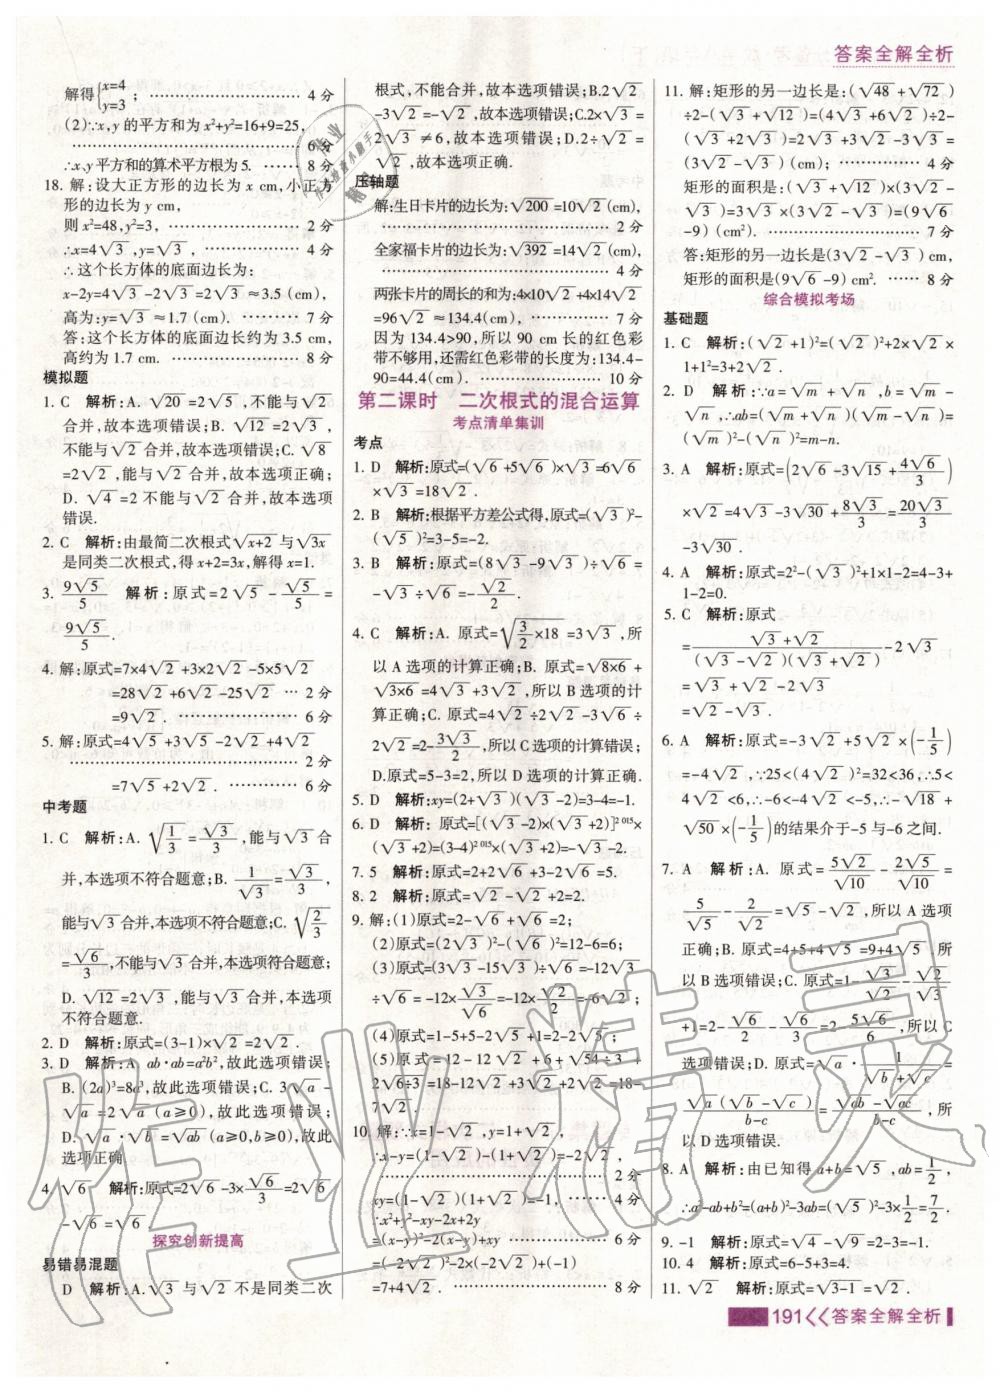 答案全解全析
解得{x=4 y=3; …… 4分
(2)∵x,y的平方和为x²+y²=16+9=25,
…… 6分
∴x,y平方和的算术平方根为5. …… 8分
18. 解:设大正方形的边长为x cm,小正方
形的边长为y cm,
则x²=48,y²=3, …… 2分
∴x=4√3,y=√3, …… 4分
∴这个长方体的底面边长为:
x-2y=4√3-2√3=2√3≈3.5(cm),
高为:y=√3≈1.7(cm). …… 7分
答:这个长方体的底面边长约为3.5 cm,
高约为1.7 cm. …… 8分
模拟题
1. C 解析:A. √20=2√5,不能与√2
合并,故本选项错误;B. √12=2√3,
不能与√2合并,故本选项错误;C. √8
=2√2,能与√2合并,故本选项正确;
D. √4=2不能与√2合并,故本选项
错误.
2. C 解析:由最简二次根式√(x+2)与√(3x)
是同类二次根式,得x+2=3x,解得x=1.
3. 9√5/5 解析:原式=2√5-√5/5=
9√5/5.
4. 解:原式=7×4√2+3×2√2-5×5√2
=28√2+6√2-25√2 … 2分
=9√2. …… 6分
5. 解:原式=4√5+3√5-2√2+4√2
…… 2分
=7√5+2√2. …… 6分
中考题
1. C 解析:A. √(1/3)=√3/3,能与√3合
并,本选项不符合题意;B. 1/√3=√3/3,
能与√3合并,本选项不符合题意;C. √(2/3)
=√6/3,不能与√3合并,本选项符合题意;
D. √12=2√3,能与√3合并,本选项
不符合题意.
2. D 解析:原式=(3-1)×√2=2√2.
3. D 解析:A. ab·ab=a²b²,故此选项错误;
B. (2a)³=8a³,故此选项错误;C. 3√a-
√a=2√a(a≥0),故此选项错误;
D. √a·√b=√(ab)(a≥0,b≥0),故此
选项正确.
4. √6 解析:原式=2√6-3×√6/3=2√6
-√6=√6.
探究创新提高
易错易混题
D 解析:A.√3与√2不是同类二次
根式,不能合并,故本选项错误;B.2√2
-3√2=-√2,故本选项错误;C.2×√3=
2√3≠6,故本选项错误;D.2√2÷2=
√2,故本选项正确.
压轴题
解:生日卡片的边长为:√200=10√2(cm),
…… 2分
全家福卡片的边长为:√392=14√2(cm),
…… 4分
两张卡片的周长的和为:4×10√2+4×14√2
=96√2≈134.4(cm), …… 7分
因为134.4>90,所以90 cm长的红色彩
带不够用,还需红色彩带的长度为:134.4-
90=44.4(cm). …… 10分
第二课时 二次根式的混合运算
考点清单集训
考点
1. D 解析:原式=(√6+5√6)×√3=6√6
×√3=18√2.
2. B 解析:根据平方差公式得,原式=(√3)²-
(√5)²=3-5=-2.
3. B 解析:原式=(8√3-9√3)÷√6=
-√3÷√6=-√2/2.
4. C 解析:A. 原式=√(3/2×18)=3√3,所
以A选项的计算正确;B. 原式=√(8×6)+
√(3×6)=4√3+3√2,所以B选项的计
算正确;C. 原式=4√2÷2√2-3√6÷
2√2=2-3√3/2,所以C选项的计算错误;
D.原式=5-3=2,所以D选项的计算正确.
5. D 解析:xy=(2+√3)(√3-2)=3-4=-1.
6. D 解析:原式=[(√3-2)×(√3+2)]²⁰¹⁵
×(√3+2)=(3-4)²⁰¹⁵×(√3+2)=-√3-2.
7. 5 解析:原式=2+2√6+3-2√6=5.
8. 2 解析:原式=√2-√2+2=2.
9. 解:(1)原式=2-√6+√6=2;
(2)原式=(2√3)²-(√6)²=12-6=6;
(3)原式=(3√3-15√3)÷√6=-12√3
÷√6=-12×√3/√6=-12×√2/2=-6√2;
(4)原式=1-5+5-2√5+1=2-2√5;
(5)原式=12-12√2+6+√54÷3+
2√6÷3=18-12√2+3√2+2√2=18-
7√2.
10. 解:∵x=1-√2,y=1+√2,
∴x-y=(1-√2)-(1+√2)=-2√2,
…… 2分
xy=(1-√2)(1+√2)=-1, …… 4分
∴x²+y²-xy-2x+2y
=(x-y)²-2(x-y)+xy …… 6分
=(-2√2)²-2×(-2√2)+(-1)
=7+4√2. …… 8分
11. 解:矩形的另一边长是:(√48+√72)
÷2-(√3+√12)=(4√3+6√2)÷2-
(√3+2√3)=2√3+3√2-3√3=
(3√2-√3)(cm); …… 4分
矩形的面积是:(√3+√12)×(3√2-
√3)=3√3×(3√2-√3)=(9√6
-9)(cm²). …… 7分
答:矩形的另一边长是(3√2-√3)cm,
矩形的面积是(9√6-9)cm². …… 8分
综合模拟考场
基础题
1. C 解析:(√2+1)²=(√2)²+2×√2×
1+1²=3+2√2.
2. D 解析:∵a=√m+√n,b=√m-
√n,∴ab=(√m+√n)(√m-√n)=
(√m)²-(√n)²=m-n.
3. A 解析:原式=(2√6-3√15+4√6/3)
×√2=4√3-3√30+8√3/3=20√3/3
-3√30.
4. A 解析:原式=2²-(√3)²+1×1-2=4-3+
1-2=0.
5. C 解析:原式
=(√3+√2)/((√3-√2)(√3+√2))-2√3
=√3+√2-2√3
=√2-√3.
6. A 解析:原式=-3√2+5√2×(-1/5)
=-4√2,∵25<(4√2)²=32<36,∴5<
4√2<6,∴-6<-4√2<-5,∴-√18+
√50×(-1/5)的结果介于-5与-6之间.
7. A 解析:A. 原式=5√2/√10-2√5/√10=
5/√5-2/√2=√5-√2,所以A选项
正确;B. 原式=4+5+4√5=9+4√5,所
以B选项错误;C.原式=1-√3/√2-√2/√3
+1=2-√6/2-√6/3=2-5√6/6,所以C
选项错误;D. 原式=√a/(√b+√c)=
√a(√b-√c)/(b-c)=(√(ab)-√(ac))/(b-c),所
以D选项错误.
8. A 解析:由已知得a+b=√5,ab=1/2,
∴a²-ab+b²=(a+b)²-3ab=(√5)²-3×1/2=7/2.
9. -1 解析:原式=√4-√9=2-3=-1.
10. 4 解析:原式=6-5+3=4.
11. √2 解析:原式=√(3-1)=√2.
191<<答案全解全析
作业精灵